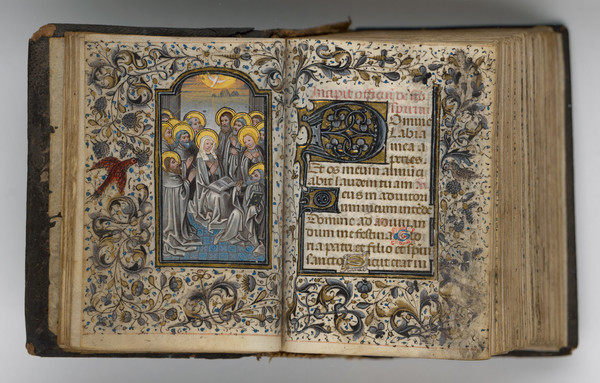 Incipit officiu de
spiritu
Domine
labia
mea a
peries
Et os meum annuci
abit laudem tuam De
us in adiutori
um meum intende
Domine ad adiuuan
dum me festina Glo
ria patri et filio et spiri
sancto Sicut erat in